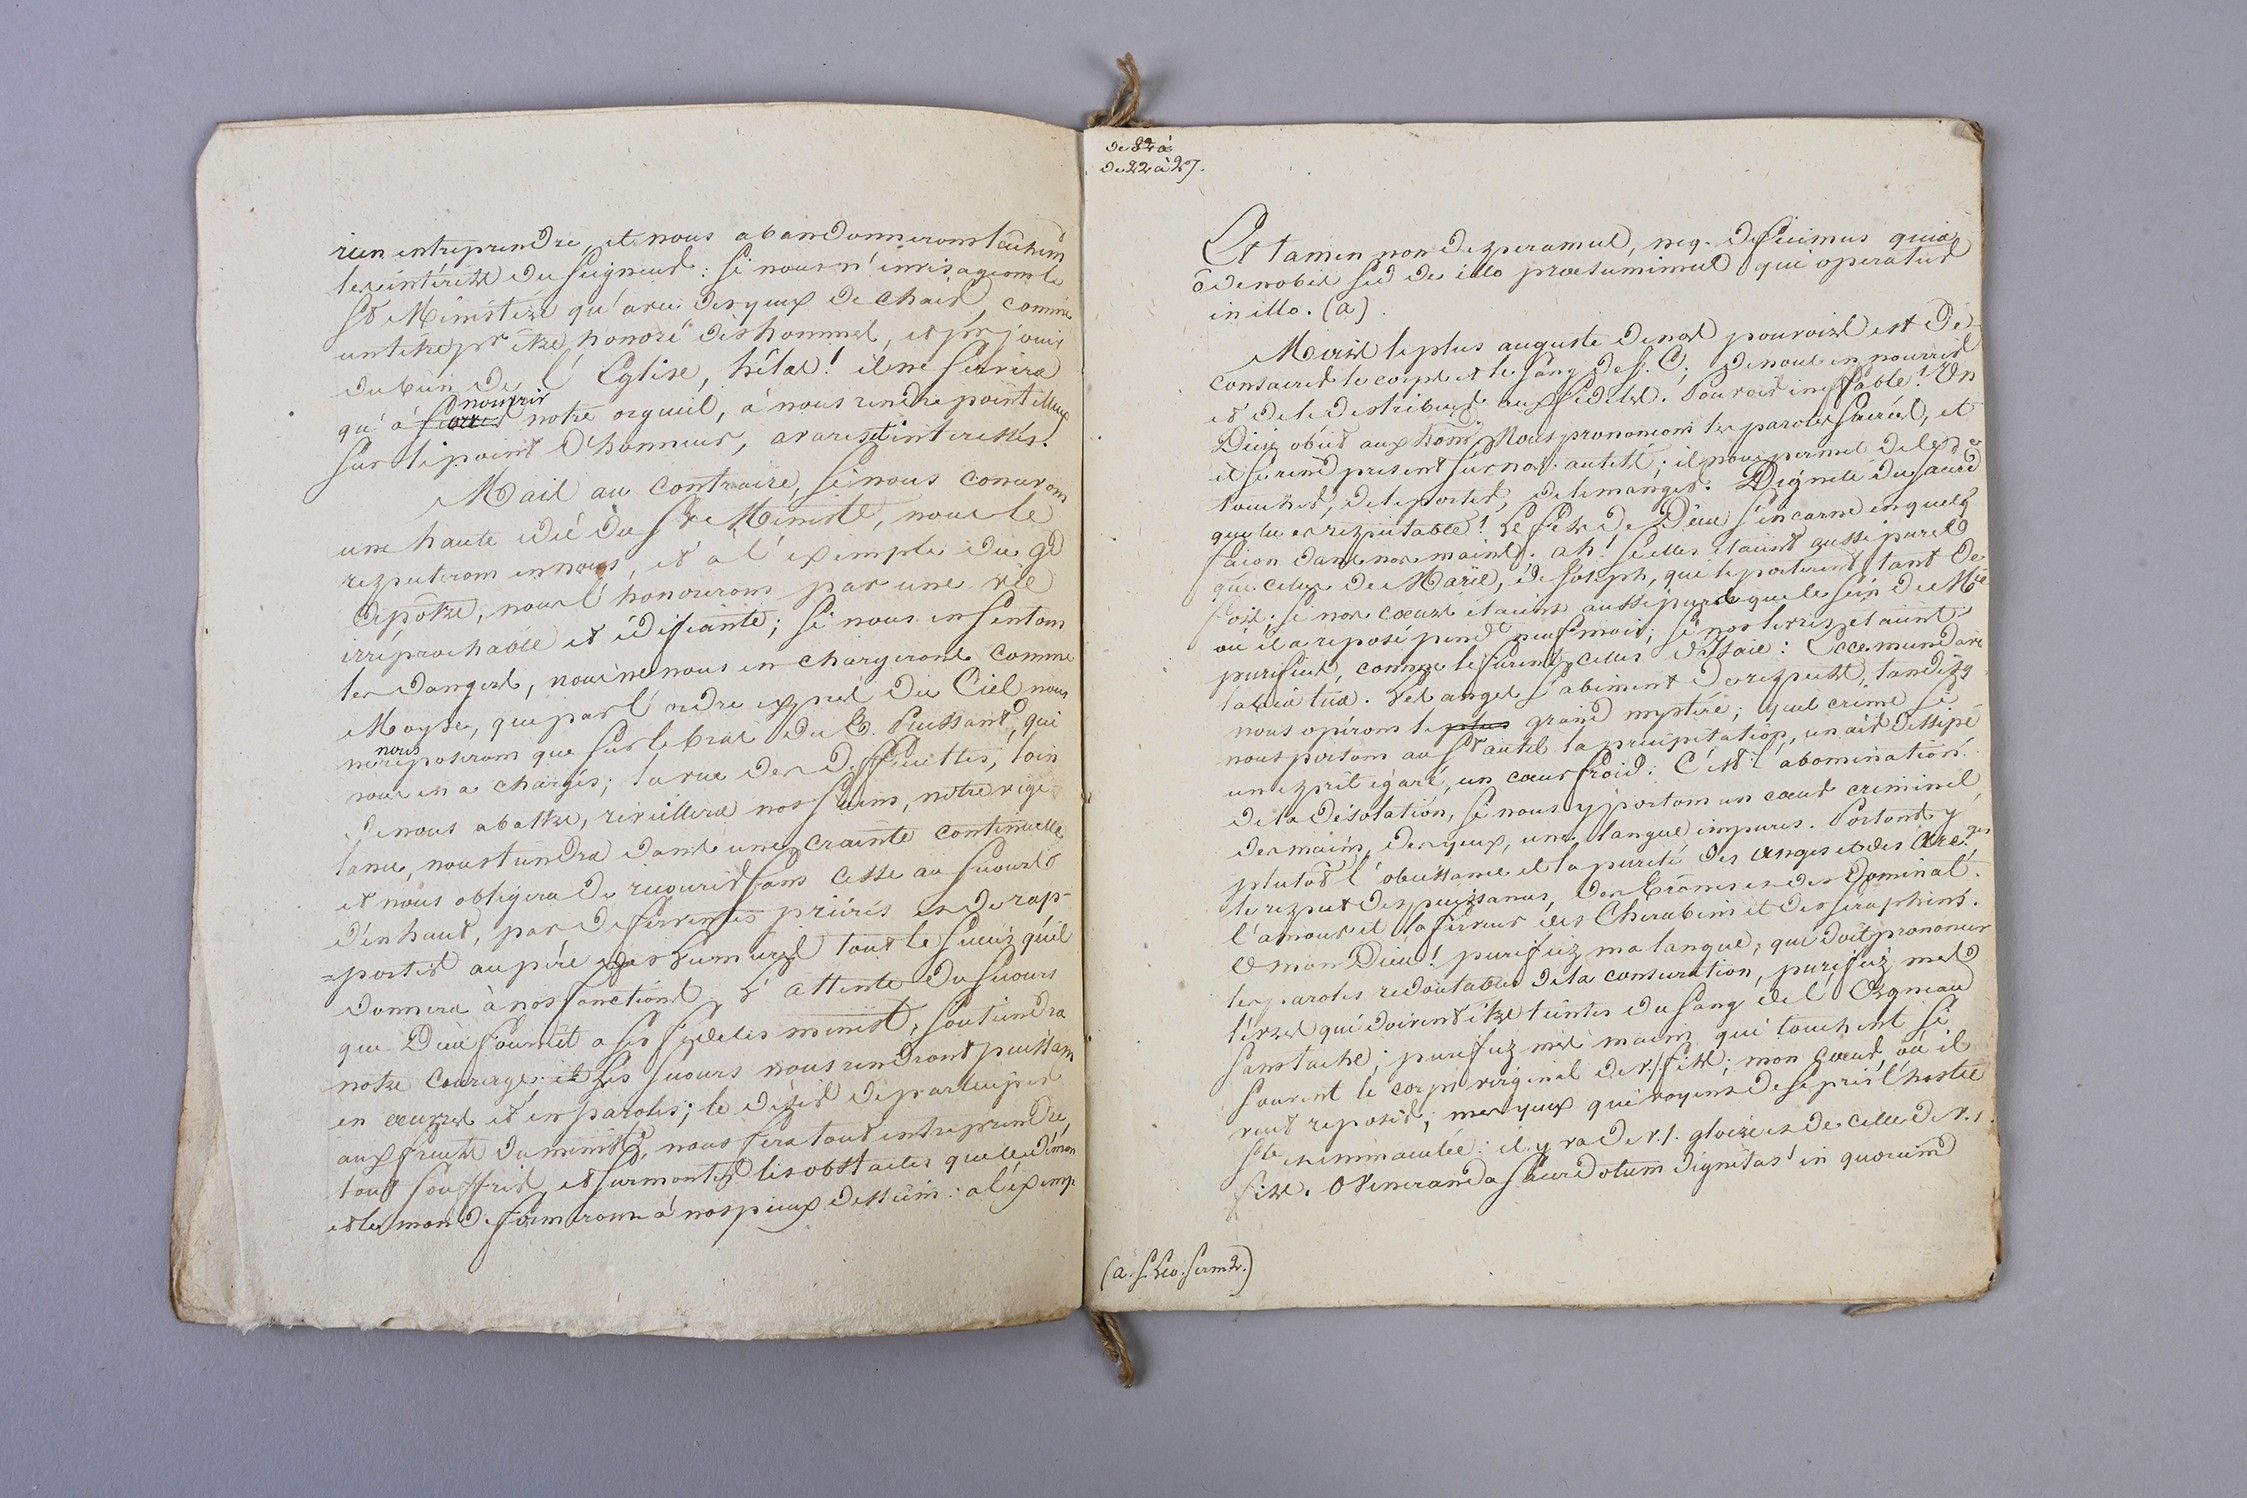 rien entreprendre, et nous abandonnerons lachem̃t
les intérêts du Seigneur: Si nous n'envisageons le
St Ministere qu'avec des yeux de chair, comme
un titre pr être honoré des hommes, et pr jouir
du bien de l'Eglise, hélas! il ne servira
nourrir
qu'à notre orgueil, à nous rendre pointilleux
sur le point d'honneur, avares et interessés.
Mais au contraire, si nous concevons
une haute idée du St Ministe, nous le
respecterons en nous, et a l'exemple du gd
Apôtre, nous l'honorerons par une vie
irréprochable et édifiante; si nous en sentons
les dangers, nous ne nous en chargerons comme
Moyse, que par l'ordre exprès du Ciel nous
nous
ne reposerons que sur le bras du T. Puissant, qui
nous en a chargés; la vue des difficultes, loin
de nous abattre, reveillera nos soins, notre vigi
lance, nous tiendra dans une crainte continuelle
et nous obligera de recourir sans cesse au secours
d'enhaut, par de ferventes priéres et de rap-
=porter au pére des Lumiéres tout le succès qu'il
donnera à nos fonctions. L'attente du secours
que Dieu fournit a ses fideles minist, soutiendra
notre courage, et ses secours nous rendront puissans
en œuvres et en paroles; le désir de participer
aux fruits du ministe, nous fera tout entreprendre,
tout souffrir, et surmonter les obstacles que le démon
et le monde formerons à nos pieux dessein: a l'exemp
de 22 à
de 22 à 27.
Et tamen non desperamus, neq. deficimus quia
õ de nobis sed de illo præsumimus qui operatur
in illo. (a).
Mais le plus auguste de nos pouvoirs est de
consacrer le corps et le sang de J. C; de nous en nourrir
et de le distribuer aux fidéles. Pouvoir ineffable! Un
Dieu obéit aux hom̃. Nous prononcons les paroles sacrées, et
il se rend present sur nos autels; il nous permet de le
toucher, de le porter, de le manger. Dignité du sacerd
que tu es respectable! Le fils de Dieu s'incarne en quelq
facon dans nos mains. ah! si elles etaient aussi pures
que celles de Marie, de Joseph, qui le porterent tant de
fois; si nos cœurs etaient aussi purs que le sein de Mie
où il a reposé pendt neuf mois; si nos levres etaient
purifiées, comme le furent celles d'Isaie: Ecce mundavi
labia tua. Les anges s'abiment de respects, tandis q
nous opérons le plus grand mystére; quel crime si
nous portons au St autel la precipitation, un air dissipé
un esprit égaré, un cœur froid. C'est l'abomination
de la désolation, si nous y portons un cœur criminel,
des mains, des yeux, une langue impures. Portons y
plutot l'obeissance et la pureté des Anges et des Arc.ges
le respect des puissances, des Trônes et des Dominat.
l'amour et la ferveur des Cherubins et des seraphins.
O mon Dieu! purifiez ma langue, qui doit prononcer
les paroles redoutables de la consecration, purifiez mes
lévres qui doivent être teintes du sang de l'Agneau
sans tache; purifiez mes mains qui touchent si
souvent le corps virginal de v./ fils; mon cœur, où il
veut reposer; mes yeux qui voyent de si près l'hostie
Ste et immaculée: il y va de v./. gloire et de celle de v./.
fils. O Veneranda sacerdotum dignitas! in quorum
(a. S. Leo. serm 2.)